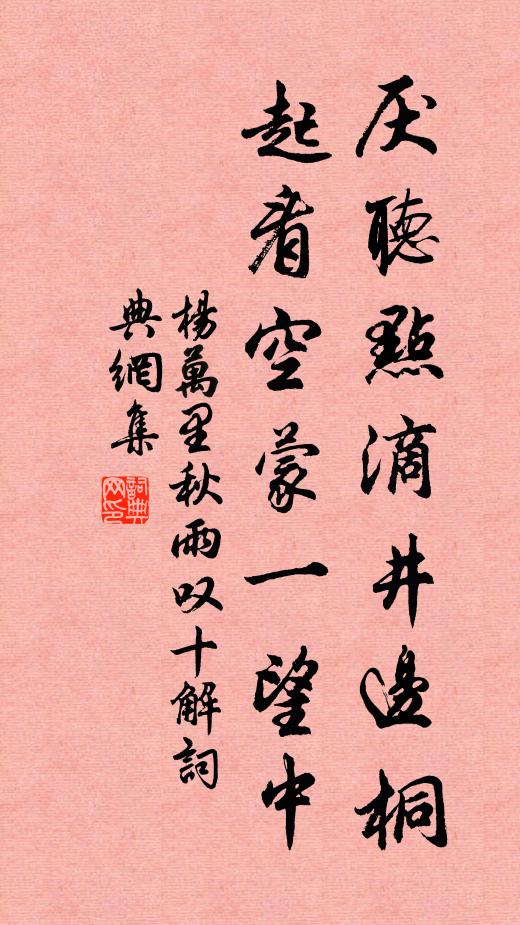 厌聽點滴井邊桐
起看空蒙一望中
楊萬里秋雨叹十解詞
典網集
詞典网印